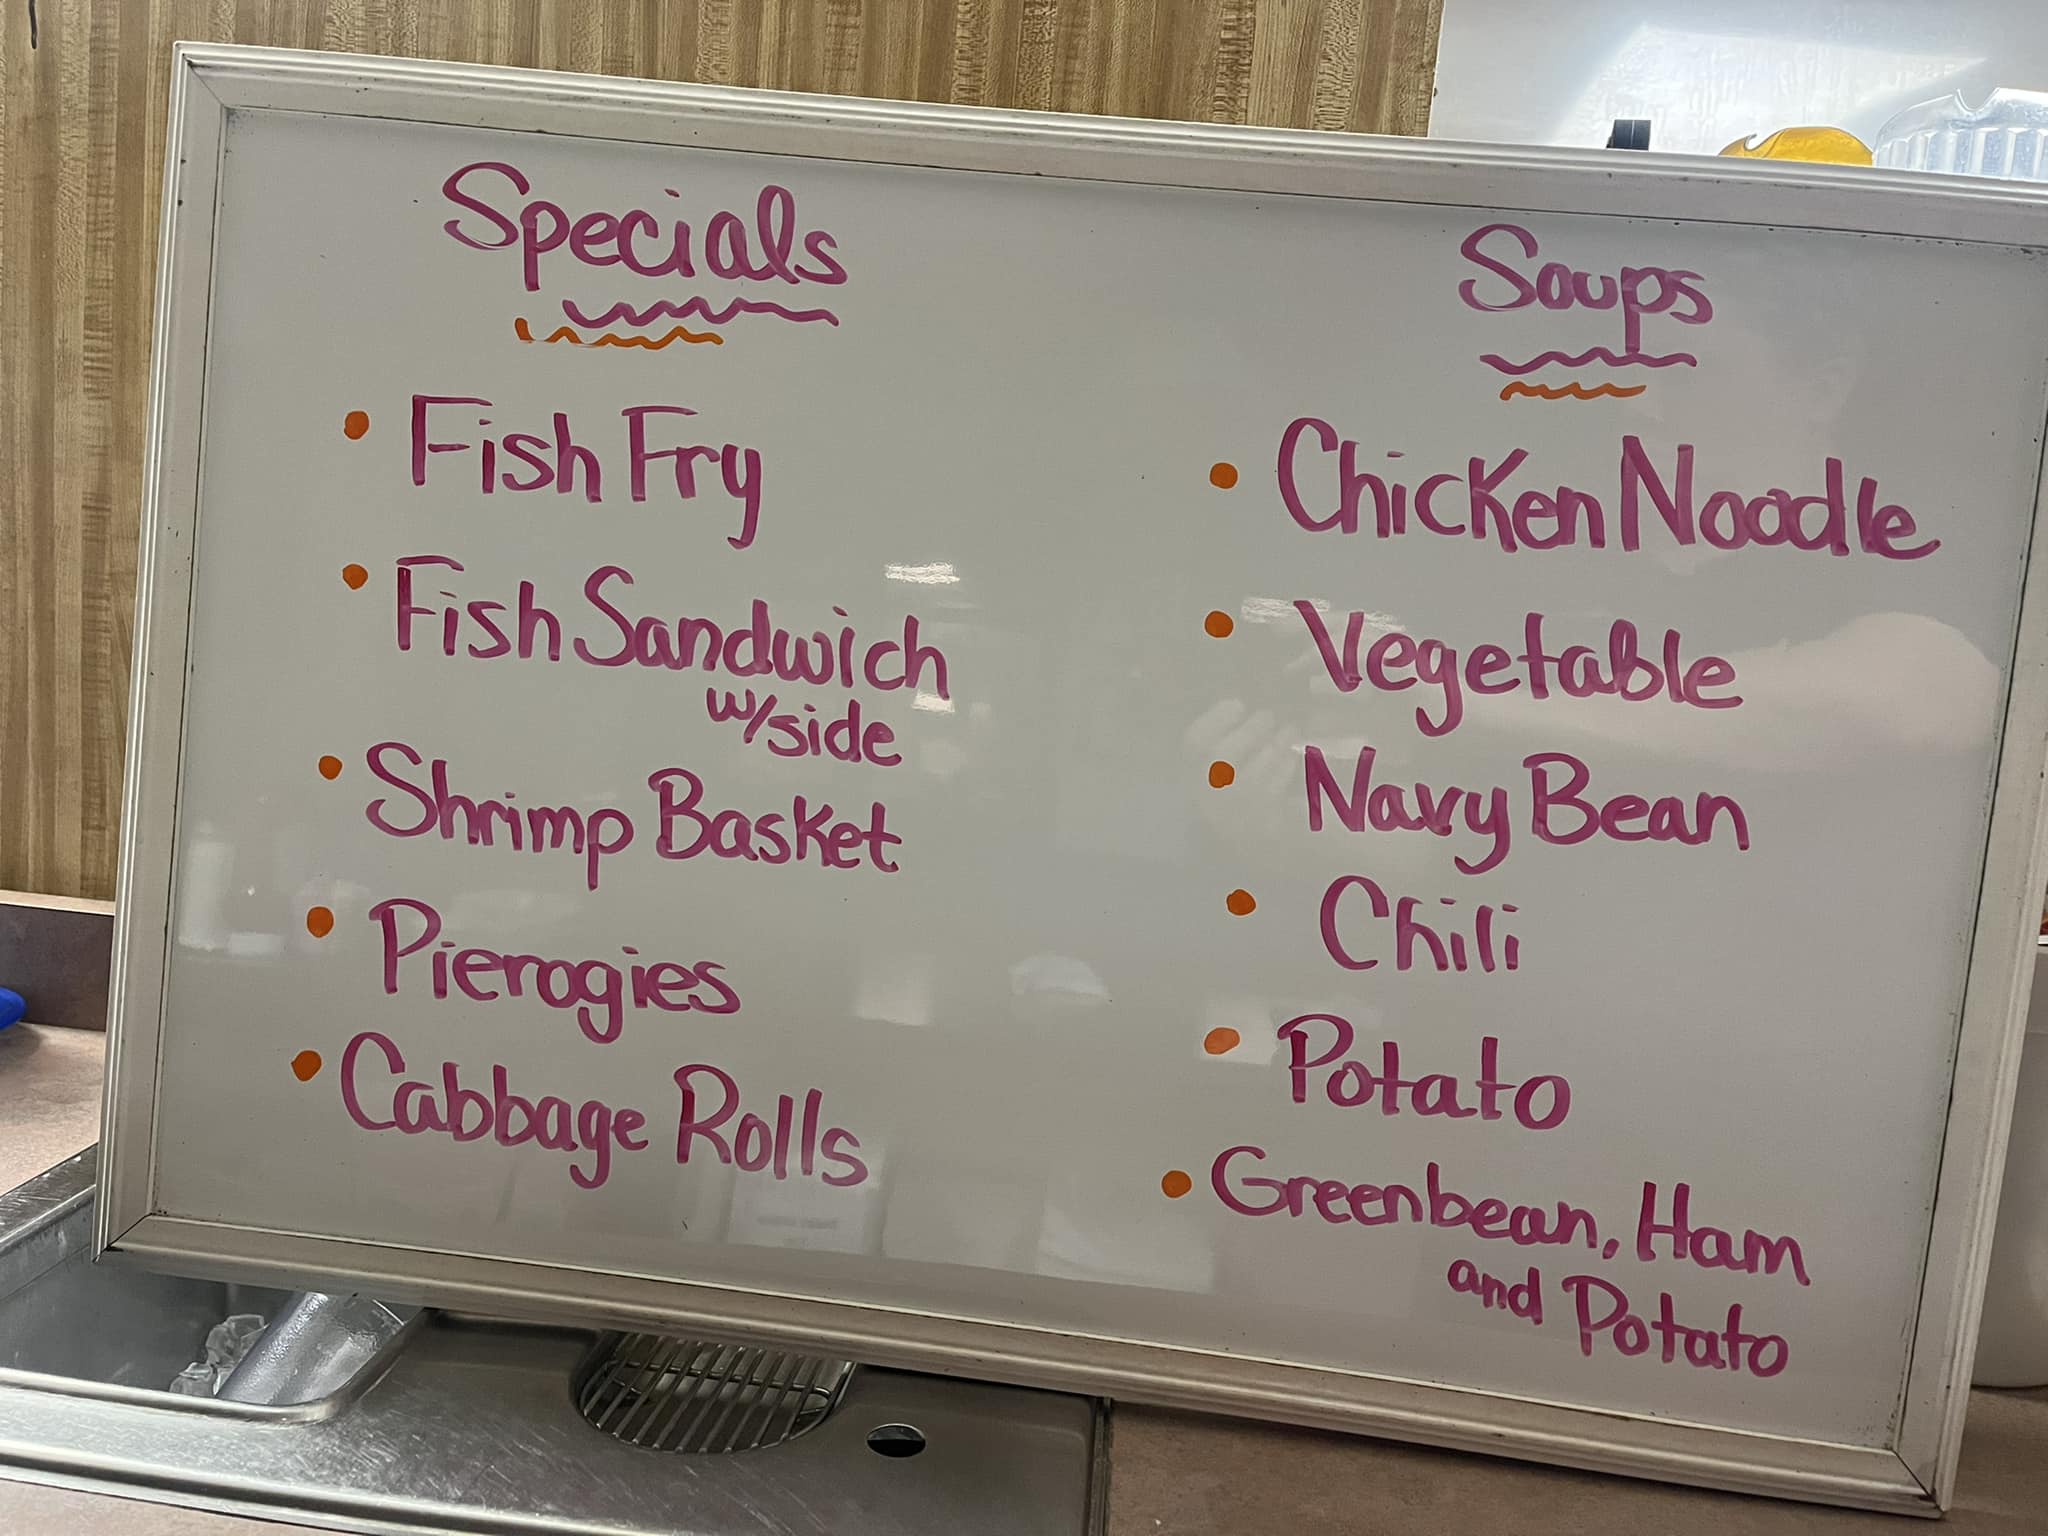 Specials
• Fish Fry
• Fish Sandwich
w/side
• Shrimp Basket
• Pierogies
• Cabbage Rolls
Soups
• Chicken Noodle
• Vegetable
• Navy Bean
• Chili
• Potato
• Greenbean, Ham
and Potato